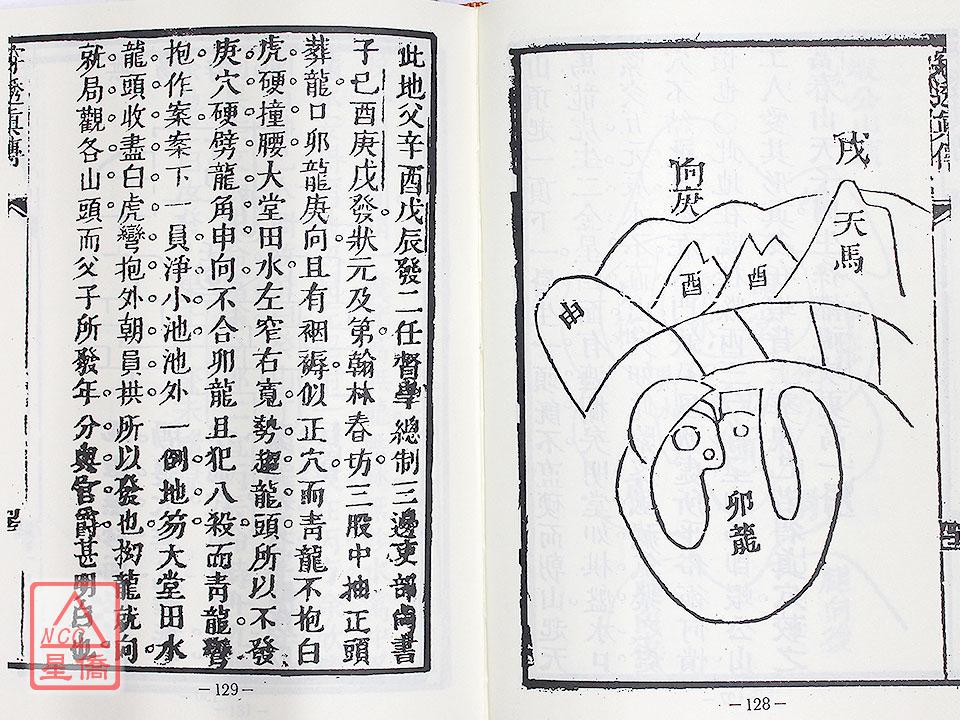 戌
天馬
向庚
酉
酉
申
卯龍
—128—
此地父辛酉戊辰發二任督學總制三邊吏部尚書
子己酉庚戌發狀元及第翰林春坊三股中抽正頭
葬龍口卯龍庚向且有裀褥似正穴而青龍不抱白
虎硬撞腰大堂田水左窄右寬勢趨龍頭所以不發
庚穴硬劈龍角申向不合卯龍且犯八殺而青龍彎
抱作案案下一員淨小池池外一倒地笏大堂田水
龍頭收盡白虎彎抱外朝員拱所以發也拗龍就向
就局觀各山頭而父子所發年分與官爵甚明白也
—129—
NCC
星僑